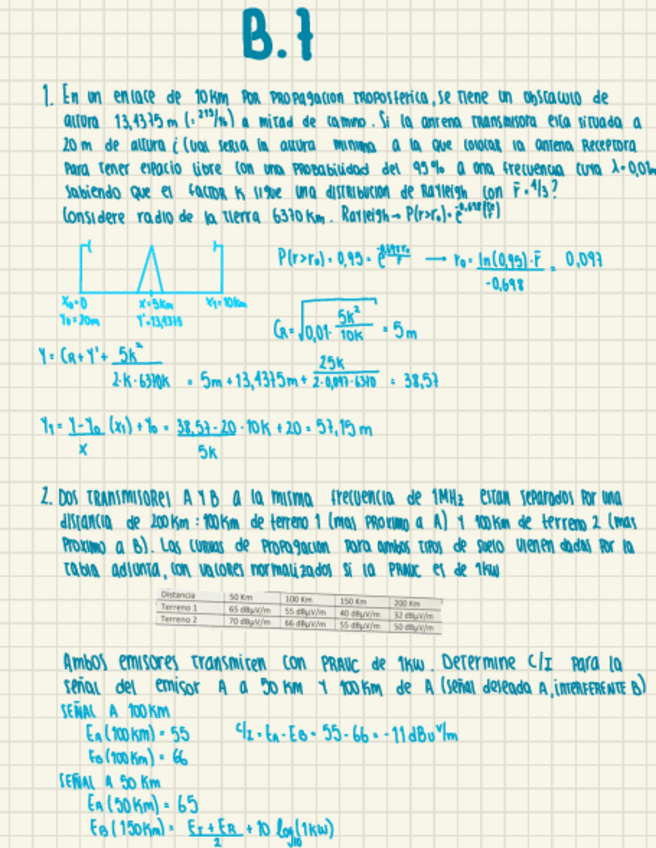 B.7
1. En un enlace de 10Km por propagacion troposferica, se tiene un obstaculo de
altura 13,4375m (=215/16) a mitad de camino. Si la antena transmisora esta situada a
20m de altura ¿Cual seria la altura minima a la que colocar la antena receptora
para tener espacio libre con una probabilidad del 95% a una frecuencia cuya λ=0,01m
sabiendo que el factor K sigue una distribucion de Rayleigh con r̄=4/3?
Considere radio de la tierra 6370Km. Rayleigh → P(r>r₀)=e
P(r>r₀)=0,95= → r₀= ln(0,95)·r̄ / -0,698 = 0,097
X₀=0 X=5Km X₁=10Km
Y₀=20m Y'=13,4375
CR=√(0,01· 5k² / 10k) = 5m
Y= CR+Y'+ 5k² / 2·K·6370k = 5m+13,4375m+ 25k / 2·0,097·6370 = 38,57
Y₁= Y-Y₀ / X (X₁)+Y₀= 38,57-20 / 5k ·10k+20= 57,15m
2. Dos transmisores A y B a la misma frecuencia de 1MHz estan separados por una
distancia de 200Km: 100Km de terreno 1 (mas proximo a A) y 100Km de terreno 2 (mas
proximo a B). Las curvas de propagacion para ambos tipos de suelo vienen dadas por la
tabla adjunta, con valores normalizados si la PRAVC es de 1kw
Distancia 50 Km 100 Km 150 Km 200 Km
Terreno 1 65 dBμV/m 55 dBμV/m 40 dBμV/m 32 dBμV/m
Terreno 2 70 dBμV/m 66 dBμV/m 55 dBμV/m 50 dBμV/m
Ambos emisores transmiten con PRAVC de 1Kw. Determine C/I para la
señal del emisor A a 50Km y 100Km de A (señal deseada A, interferente B)
SEÑAL A 100Km
EA(100Km)=55 C/I=EA-EB=55-66=-11dBuV/m
EB(100Km)=66
SEÑAL A 50Km
EA(50Km)=65
EB(150Km)= EI+ER / 2 +10 log₁₀(1kw)